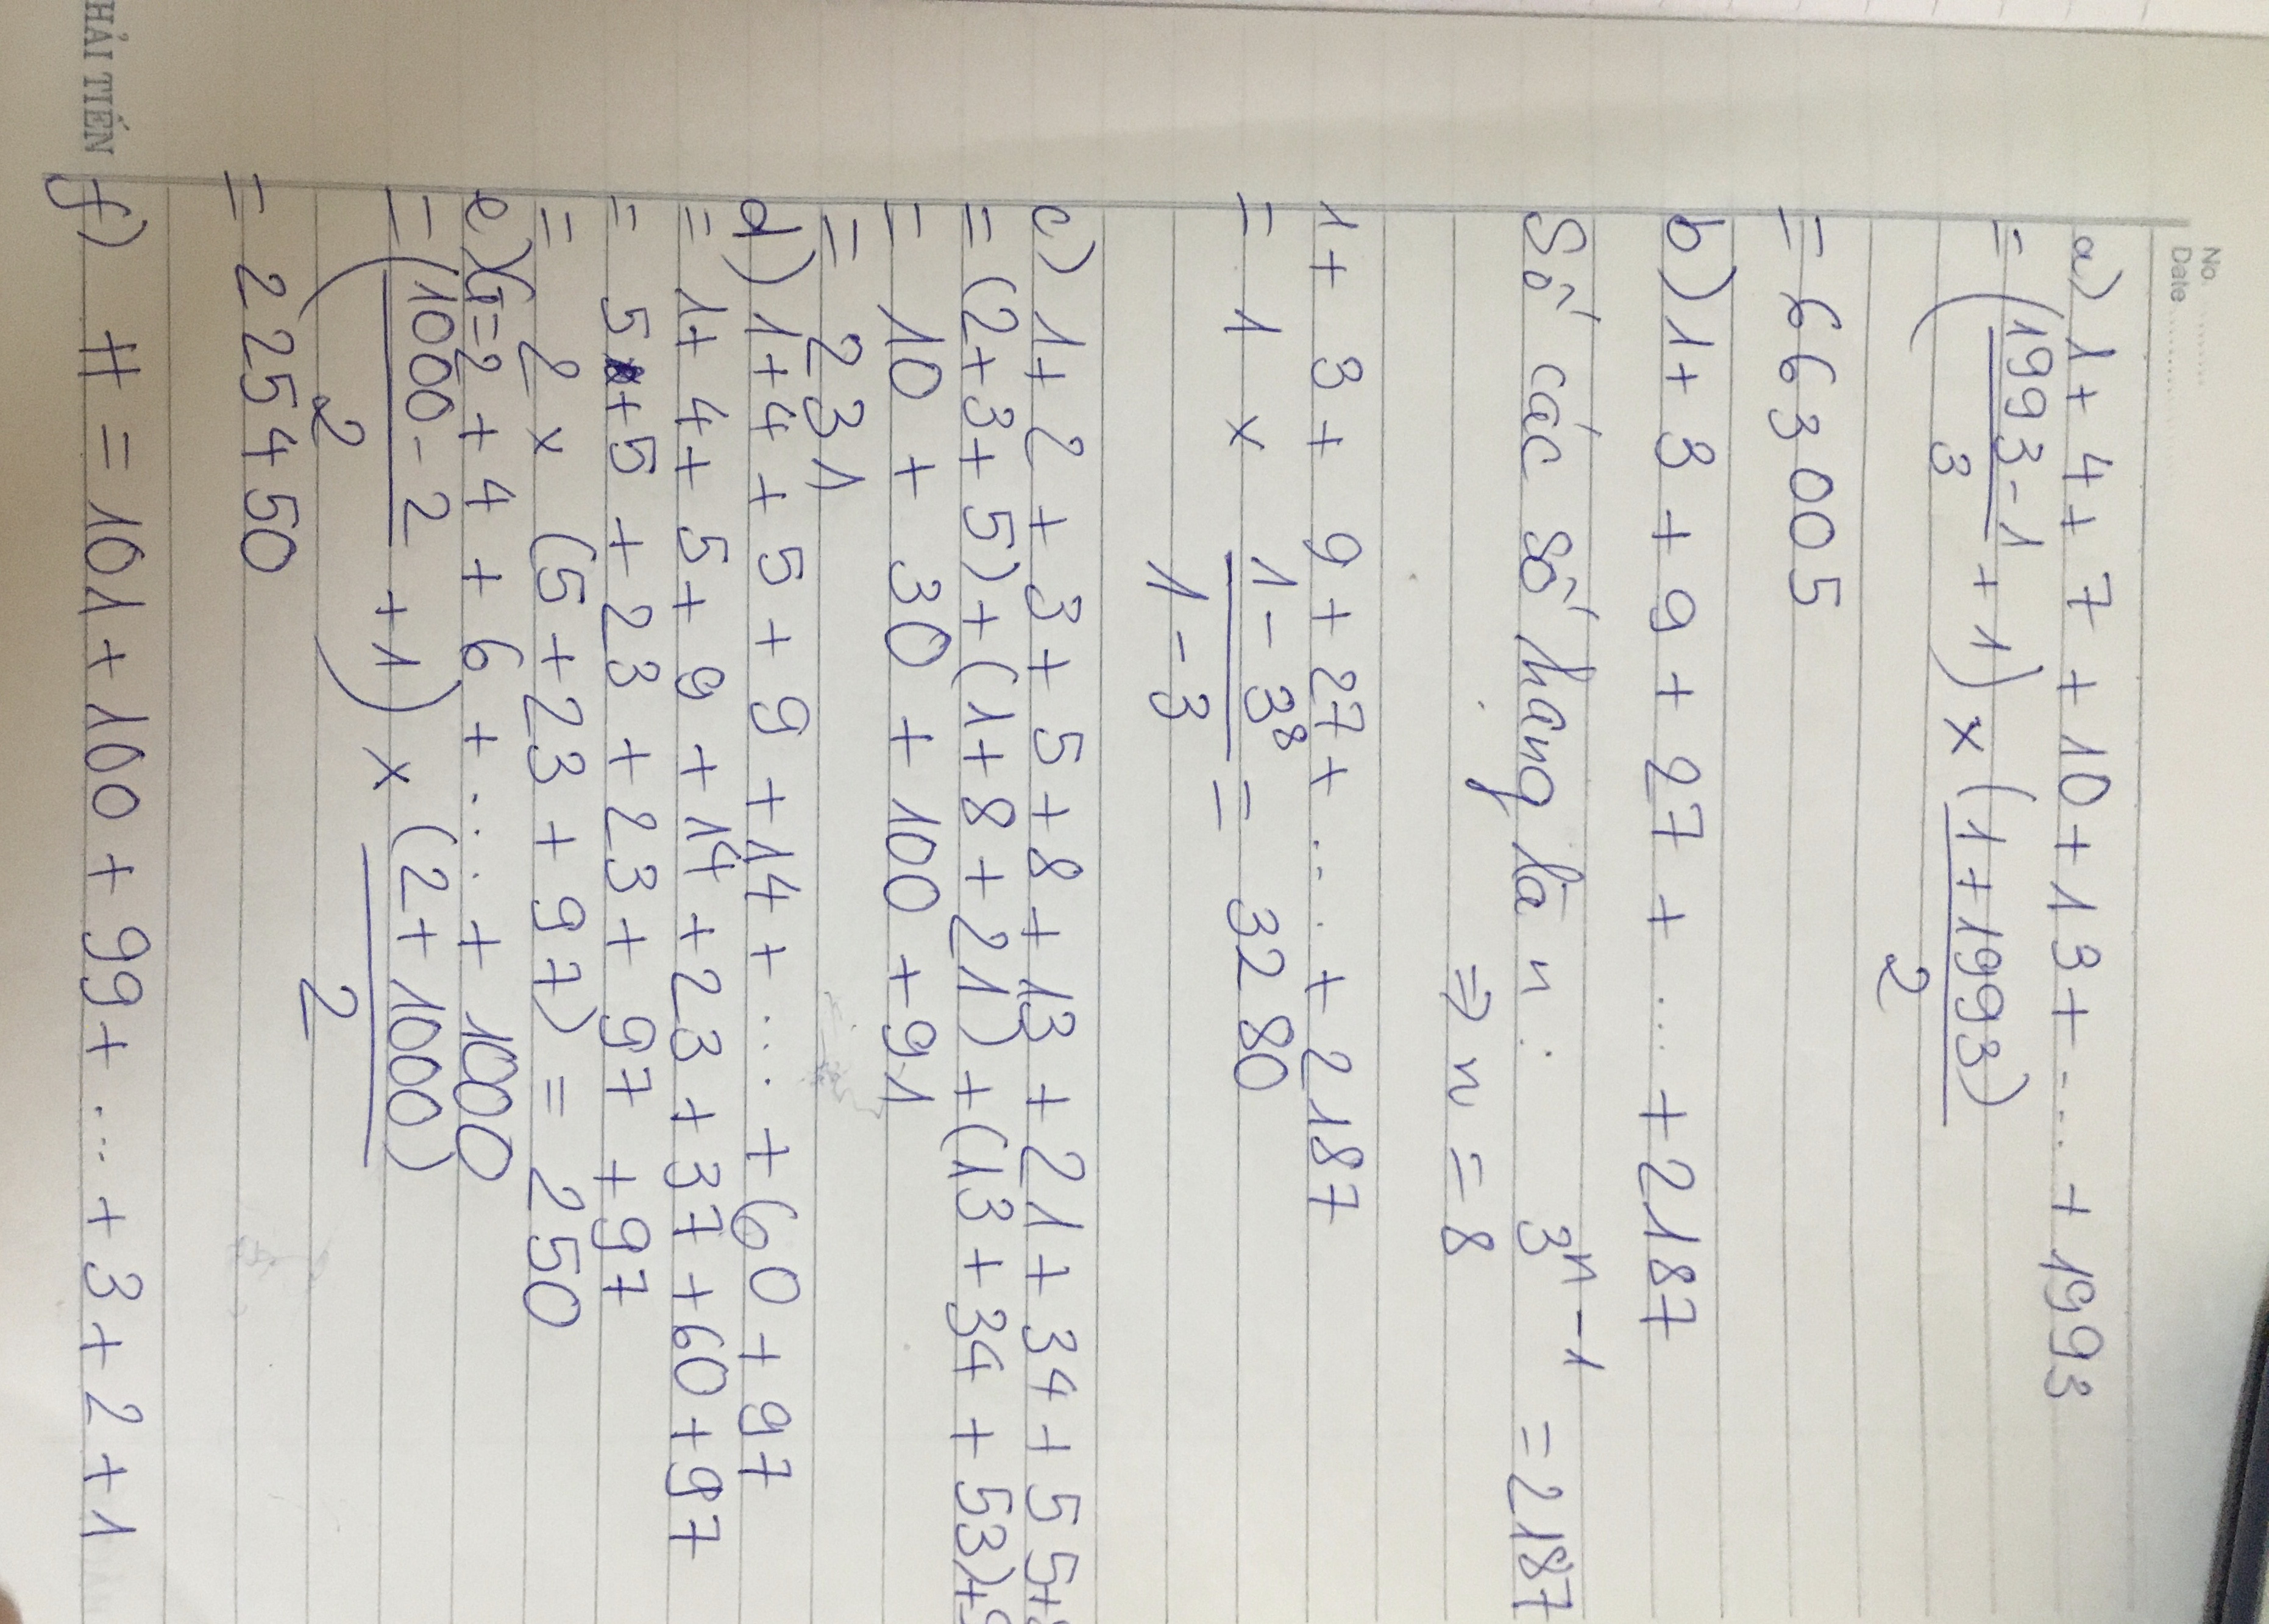 No.
Date
a) 1 + 4 + 7 + 10 + 13 + .... + 1993
= (1993 - 1 / 3 + 1) x (1 + 1993) / 2
= 663005
b) 1 + 3 + 9 + 27 + .... + 2187
Số các số hang là n : 3^n-1 = 2187
=> n = 8
1 + 3 + 9 + 27 + .... + 2187
= 1 x 1 - 3^8 / 1 - 3 = 3280
c) 1 + 2 + 3 + 5 + 8 + 13 + 21 + 34 + 55 +
= (2 + 3 + 5) + (1 + 8 + 21) + (13 + 34 + 53) +
= 10 + 30 + 100 + 91
= 231
d) 1 + 4 + 5 + 9 + 14 + .... + 60 + 97
= 1 + 4 + 5 + 9 + 14 + 23 + 37 + 60 + 97
= 5 + 5 + 23 + 23 + 97 + 97
= 2 x (5 + 23 + 97) = 250
e) G = 2 + 4 + 6 + .... + 1000
= (1000 - 2 / 2 + 1) x (2 + 1000) / 2
= 225450
f) H = 101 + 100 + 99 + ... + 3 + 2 + 1
HẢI TIẾN